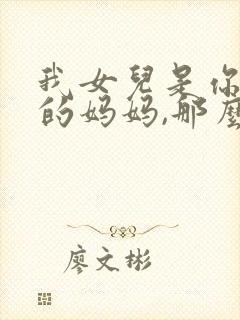 我女兒是你
的媽媽,那麼
廖文彬